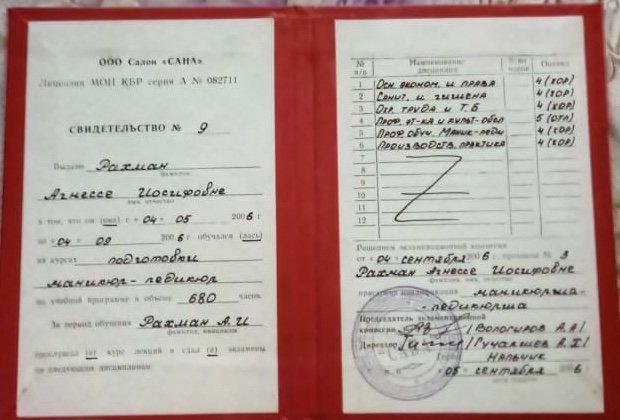 ООО Салон «САНА»
Лицензия МОН КБР серия А № 082711
СВИДЕТЕЛЬСТВО № 9
Выдано Рахман
фамилия
Агнессе Иосифовне
имя, отчество
в том, что он (она) с «04» 05 2006 г
по «04» 09 2006 г обучался (лась)
на курсах подготовки
маникюр-педикюр
по учебной программе в объеме 680 часов
За период обучения Рахман А.И
фамилия, инициалы
прослушал (а) курс лекций и сдал (а) экзамены
по следующим дисциплинам
№ п/п Наименование дисциплин часов Оценка
1 Осн. эконом. и права 4 (хор)
2 Санит. и гигиена 4 (хор)
3 Охр. труда и Т.Б 4 (хор)
4 Проф. эт-ка и культ-обсл 5 (отл)
5 Проф. обуч. маник-педи 4 (хор)
6 Производств. практика 4 (хор)
7
8
9
10
11
12
Решением экзаменационной комиссии
от «04» сентября 2006 г. протокол № 3
Рахман Агнессе Иосифовне
фамилия, имя, отчество
присвоена квалификация маникюрша-
педикюрша
Председатель экзаменационной
комиссии /Вологиров А.А/
Директор /Гучапшев А.Х/
Город Нальчик
«05» сентября 2006